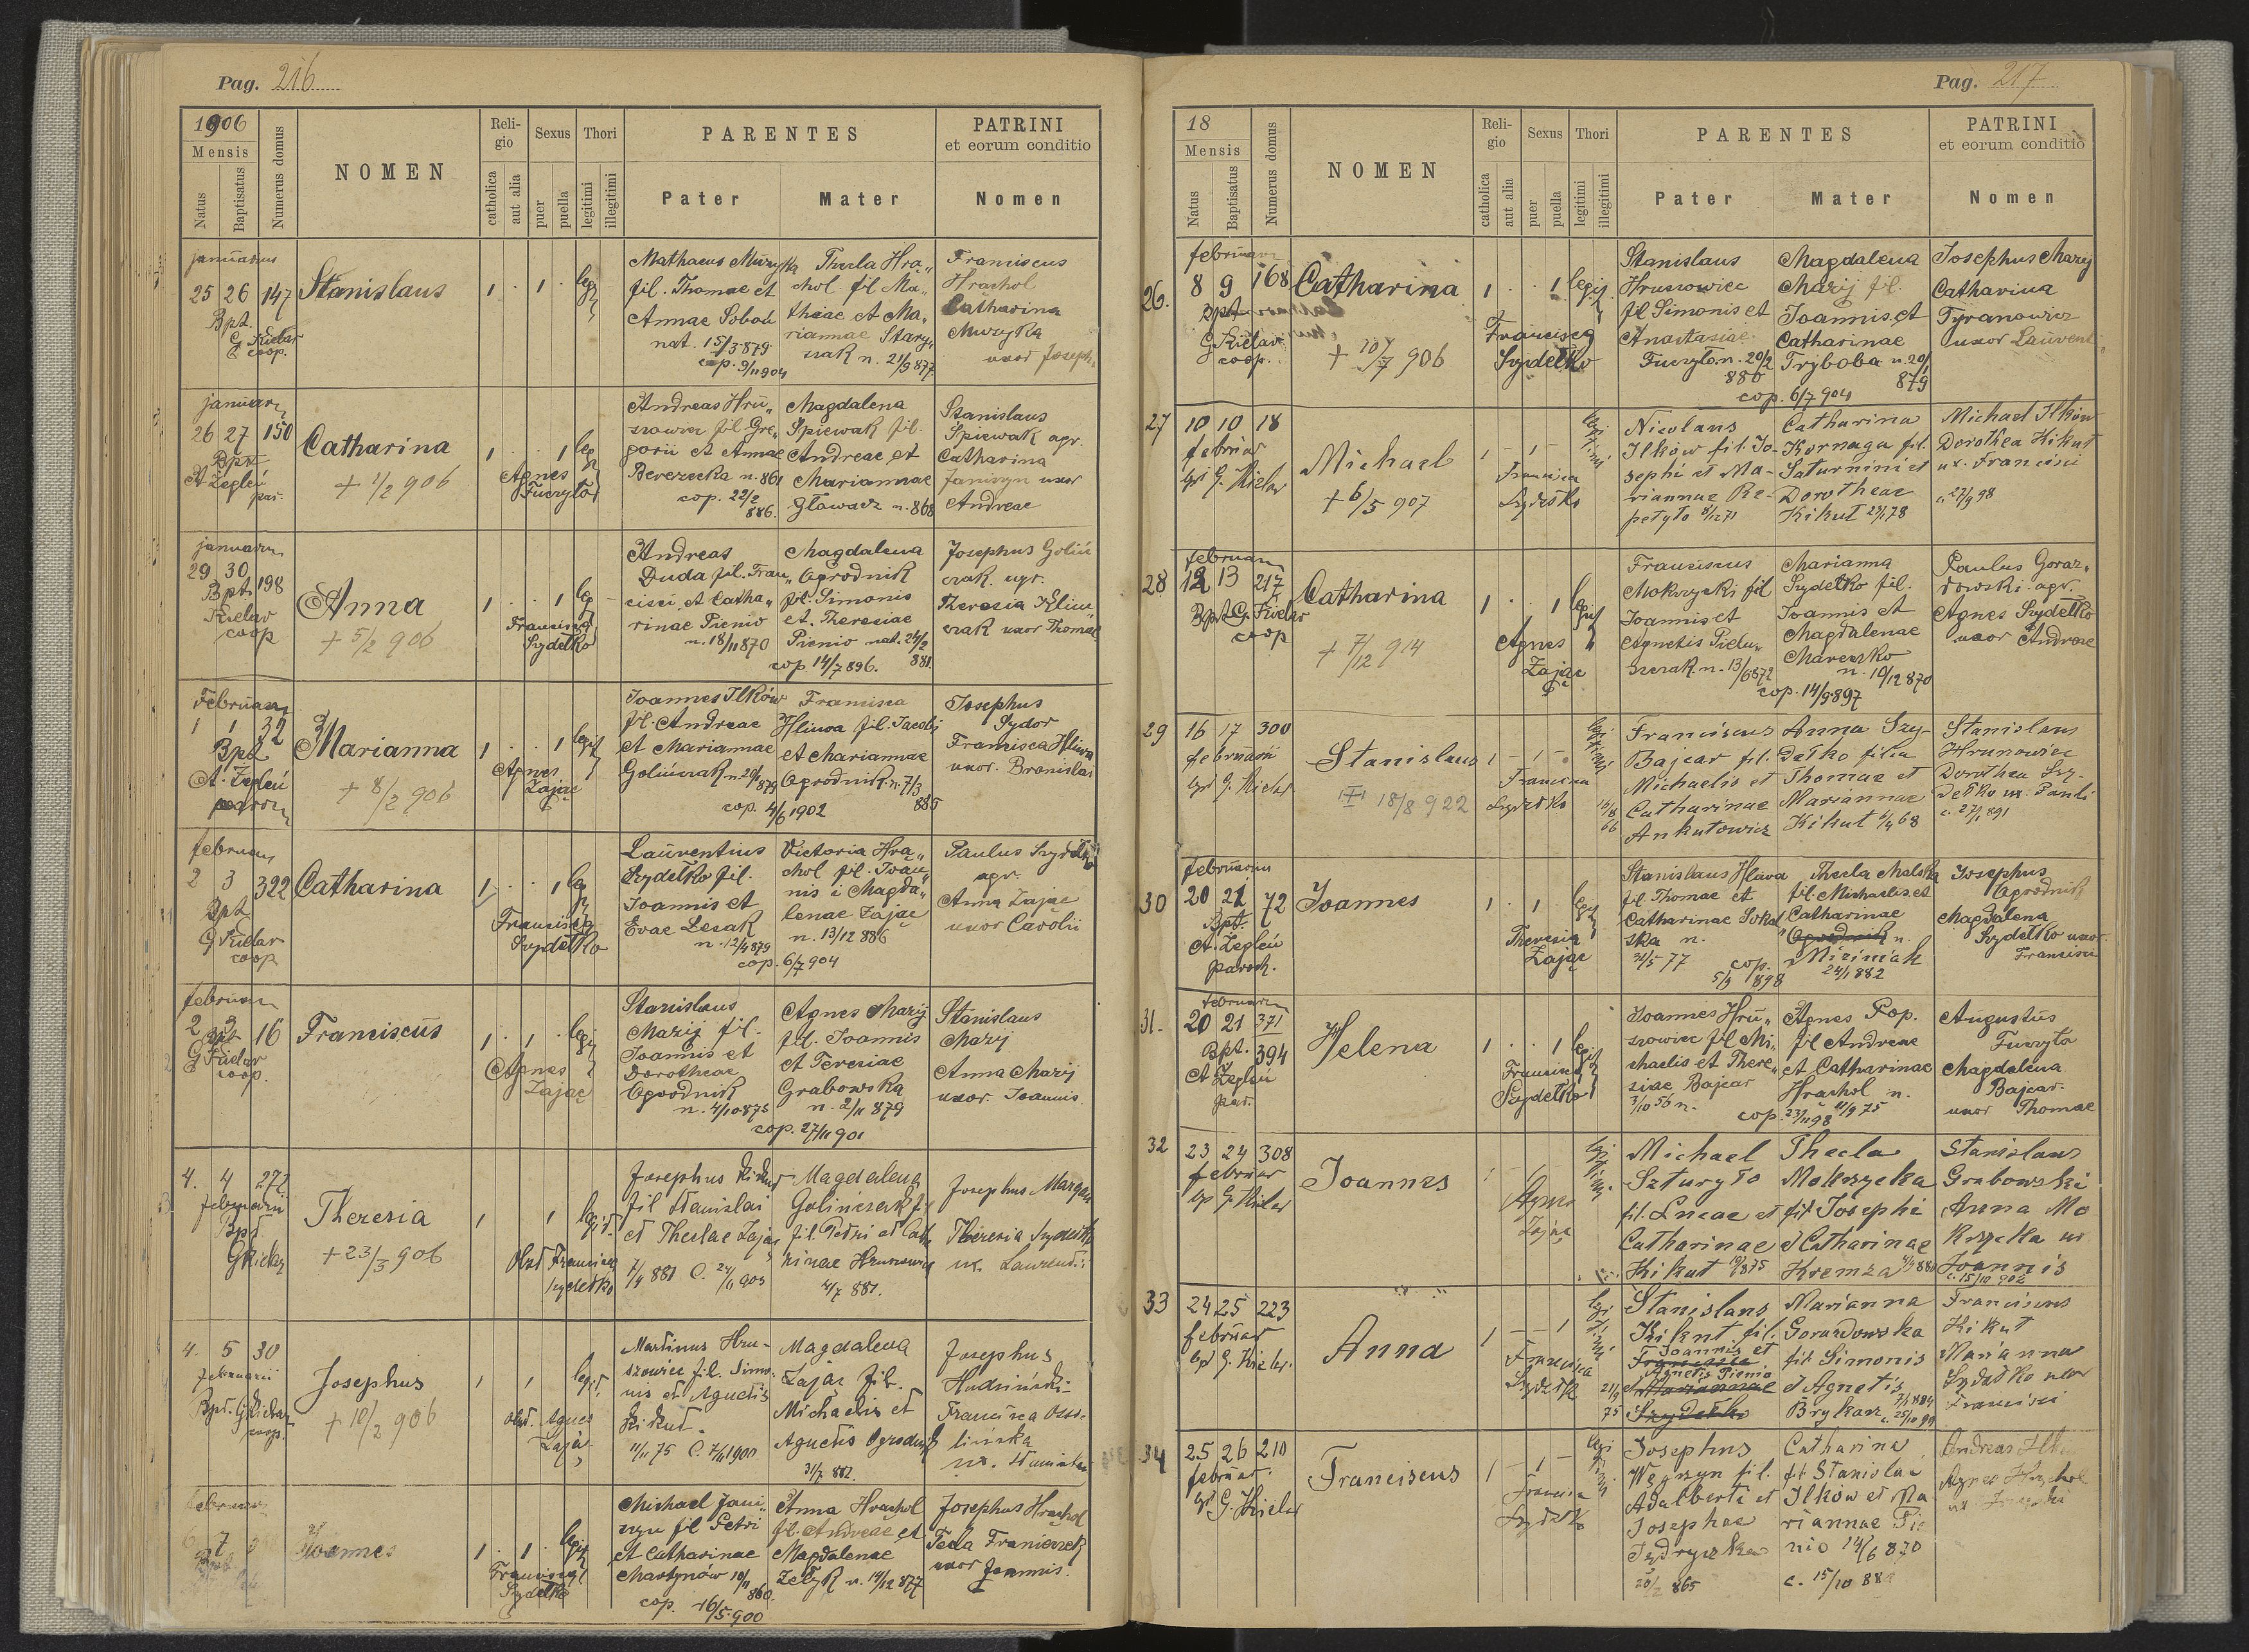 Pag. 216
1906
Mensis
Natus
Baptisatus
Numerus domus
NOMEN
Religio
catholica
aut alia
Sexus
puer
puella
Thori
legitimi
illegitimi
PARENTES
Pater
Mater
PATRINI
et eorum conditio
Nomen
januarius
25 26 147
Bpt.
G Kielar
coop.
Stanislaus
1 . 1 . leg
Mathaeus Muzyka
fil. Thomae et
Annae Sobol
nat. 15/3 879
cop. 9/11 904
Thecla Hra„
chol fil Ma„
thiae et Ma„
riannae Stary„
szak n. 21/9 877.
Franciscus
Hrachol
Catharina
Muzyka
uxor Joseph
januar
26 27 150
Bpt
A. Zegleń
par.
Catharina
+ 1/2 906
1 . . 1 leg
Agnes
Fuczyło
Andreas Hru„
szowiec fil. Gre„
gorii et Annae
Berezecka n. 861
cop. 22/2
886.
Magdalena
Spiewak fil.
Andreae et
Mariannae
Gławacz n. 868
Stanislaus
Spiewak agr.
Catharina
Janiszyn uxor
Andreae
januar
29 30
198
Bpt
Kielar
coop
Anna
+ 5/2 906
1 . . 1 leg
Francisca
Szydełko
Andreas
Duda fil. Fran„
cisci et Catha„
rinae Pienio
n. 18/11 870
cop. 14/7 896.
Magdalena
Ogrodnik
fil. Simonis
et Theresiae
Pienio nat. 24/2
881
Josephus Goliń
czak. agr.
Theresia Klim
czak uxor Thomae
Februar
1 1 32
Bpt
A. Zegleń
paroch
Marianna
+ 8/2 906
1 . . 1 legit
Agnes
Zając
Joannes Ilków
fil. Andreae
et Mariannae
Golińczak n. 20/1 879
cop. 4/6 1902
Francisca
Hliwa fil. Jacobi
et Mariannae
Ogrodnik n. 7/3
885
Josephus
Sydor
Francisca Hliwa
uxor. Bronislai
februar
2 3 322
Bpt
G Kielar
coop
Catharina
1 . . 1 leg
Francisca
Szydełko
Laurentius
Szydełko fil.
Joannis et
Evae Lesak
n. 12/4 879
cop. 6/7 904
Victoria Hra„
chol fil. Joan„
nis i Magda„
lenae Zając
n. 13/12 886
Paulus Szydełko
agr.
Anna Zając
uxor Caroli
februar
2 3 16
Bpt
G Kielar
coop.
Franciscus
1 . 1 . leg
Agnes
Zając
Stanislaus
Mazij fil.
Joannis et
Dorotheae
Ogrodnik
n. 4/10 875
cop. 27/11 901
Agnes Mazij
fil. Joannis
et Teresiae
Grabowska
n. 2/11 879
Stanislaus
Mazy
Anna Mazij
uxor. Joannis
4. 4 272
februarii
Bpt
G Kielar
Theresia
+ 23/3 906
1 1 legit.
Obst Francisca
Szydełko
Josephus Kikut
fil Stanislai
et Theclae Zając
7/4 881 C. 24/11 903
Magdalena
Golinczak fil
fil Petri et Catha
rinae Hruszowiec
4/7 881.
Josephus Margas
Theresia Szydełko
ux. Laurentii
4. 5 30
februarii
Bpt. G Kielar
coop.
Josephus
+ 10/2 906
1 1 legit.
Obst. Agnes
Zając
Martinus Hru-
szowiec fil. Simo-
nis et Agnetis
Kikut.
11/11 75 C. 7/11 1900
Magdalena
Zając fil.
Michaelis et
Agnetis Ogrodnik
31/7 882.
Josephus
Hudziński-
Francisca Osso-
lińska
ux. Stanislai
februar
7
Bpt
Joannes
1 . 1 . legit
Francisca
Szydełko
Michael Jani„
szyn fil Petri
et Catharinae
Martynów 10/11
860.
cop. 16/5 900
Anna Hrachol
fil. Andreae et
Magdalenae
Zełyk n. 14/12 877
Josephus Hrachol
Tecla Franczek
uxor Joannis.
Pag. 217
18
Mensis
Natus
Baptisatus
Numerus domus
NOMEN
Religio
catholica
aut alia
Sexus
puer
puella
Thori
legitimi
illegitimi
PARENTES
Pater
Mater
PATRINI
et eorum conditio
Nomen
26.
februar
8 9 168
Bpt
G Kielar
coop.
Catharina
+ 10/7 906
1 . . 1 legit
Francisca
Szydełko
Stanislaus
Hruszowiec
fil Simonis et
Anastasiae
Fuczyło n. 20/2
880
cop. 6/7 904
Magdalena
Mazij fil.
Joannis et
Catharinae
Tryboba n. 20/
879
Josephus Mazij
Catharina
Tyranowicz
uxor Laurent
27
10 10 18
februar
bpt G. Kielar
Michael
+ 6/5 907
1 - 1 - legitimi
Francisca
Szydełko
Nicolaus
Ilków fil. Jo-
sephi et Ma-
riannae Re-
petyło 8/12 71
Catharina
Kornaga fil.
Saturnini et
Dorotheae
Kikut 23/1 78
Michael Ilków
Dorothea Kikut
ux. Francisci
c. 27/9 98
28
februar
12 13 217
Bpt G. Kielar
coop
Catharina
+ 7/12 914
1 . . 1 legit
Agnes
Zając
Franciscus
Mokrzycki fil
Joannis et
Agnetis Pietru„
szczak n. 13/6 872
cop. 14/9 897
Marianna
Szydełko fil.
Joannis et
Magdalenae
Mareszko
n. 10/12 870
Paulus Goraz„
dowski. agr.
Agnes Szydełko
uxor Andreae
29
16 17 300
februarii
bpt G. Kielar
Stanislaus
+ 18/8 922
1 - 1 - legitimi
Francisca
Szydełko
Franciscus
Bajcar fil.
Michaelis et
Catharinae
Ankutowicz
16/8 66
Anna Szy-
dełko filia
Thomae et
Mariannae
Kikut 6/4 68
Stanislaus
Hruszowiec
Dorothea Szy-
dełko ux. Pauli
c. 27/1 891
30
februarius
20 21 72
Bpt.
A. Zegleń
paroch.
Joannes
1 . 1 . legit
Theresia
Zając
Stanislaus Hliwa
fil Thomae et
Catharinae Sokal„
ska n.
31/5 77
cop.
5/9 1898
Thecla Malska
fil. Michaelis et
Catharinae
Ogrodnik n.
Miziniak
24/1 882
Josephus
Ogrodnik
Magdalena
Szydełko uxor.
Francisci
31.
februar
20 21 371
394
Bpt.
A Zegleń
par.
Helena
1 . . 1 legit
Francisca
Szydełko
Joannes Hru„
szowiec fil Mi„
chaelis et There„
siae Bajcar
3/10 56 n.
cop. 23/11 98
Agnes Pop.
fil Andreae
et Catharinae
Hrachol n.
11/9 75
Augustus
Fuczyło
Magdalena
Bajcar.
uxor Thomae
32
23 24 308
februar
bpt G. Kielar
Joannes
1 legitimi
Agnes
Zając
Michael
Szturyło
fil. Lucae et
Catharinae
Kikut 10/ 875
Thecla
Mokrzycka
fil Josephi
et Catharinae
Kremza 880
Stanislaus
Grabowski
Anna Mo
krzycka ux
Joannis
c. 15/10 902
33
24 25 223
februar
bpt G. Kielar
Anna
1 - - 1 legitimi
Francisca
Szydełko
Stanislaus
Kikut fil.
Joannis et
Francisci
Agnetis Pienio
Mariannae
Szydełko
21/9 75
Marianna
Gorazdowska
fil Simonis
et Agnetis
Brykacz 3/1 884
c. 25/11 99
Franciscus
Kikut
Marianna
Szydełko uxor
Francisci
34
25 26 210
februar.
bpt G. Kielar
Franciscus
1 - 1 - legitimi
Francisca
Szydełko
Josephus
Węgrzyn fil.
Adalberti et
Josephae
Jędryszka
20/2 865
Catharina
fil Stanislai
Ilków et Ma
riannae Pie
nio 14/6 870
c. 15/10 88
Andreas
Agnes Hrachol